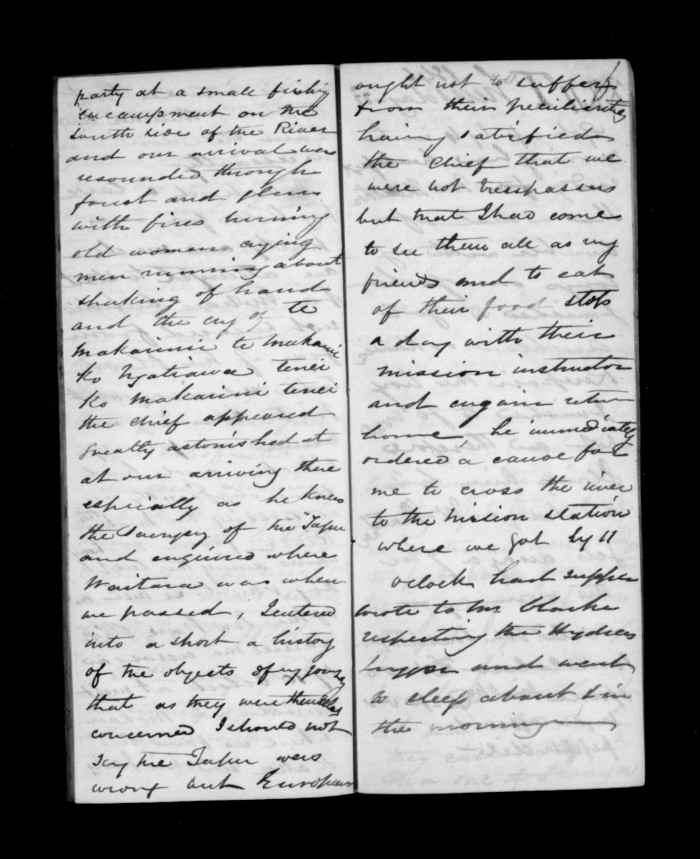 party at a small fishing
encampment on the
south side of the River
and our arrival was
resounded through
forest and glen
with fires burning
old women crying
men running about
shaking of hand
and the cry of te
makarini te makarini
ko Ngatiawa tenei
ko makarini tenei
the chief appeared
greatly astonished at
at our arriving there
especially as he knew
the of the "Tapu
and enquired where
Waitara was when
we passed, I entered
into a short a history
of the objects of my journey
that as they were themselves
concerned I should not
say the Tapu was
wrong but Europeans
ought not to suffer
from their peculiarity
having satisfied
the chief that we
were not trespassers
but that I had come
to see them all as my
friends and to eat
of their food stop
a day with their
mission instructor
and again return
home, he immediately
ordered a canoe for
me to cross the river
to the mission station
where we got by 11
oclock had supper
wrote to Mr
respecting the
and went
to sleep about 1 in
the morning